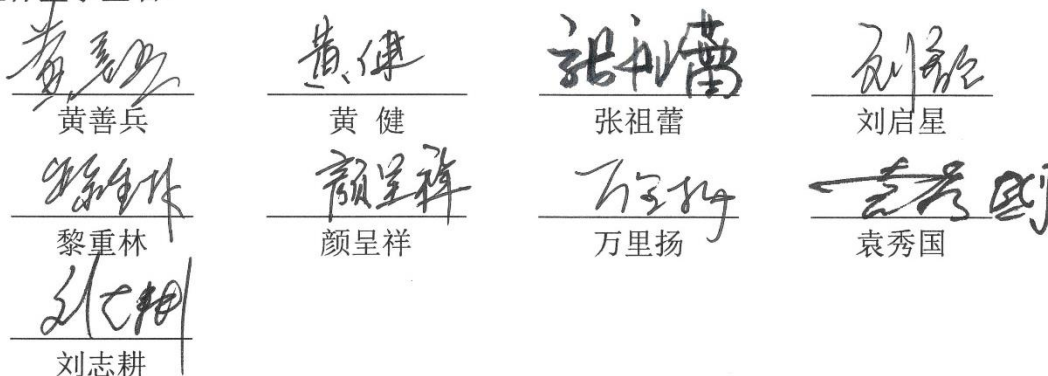 黄善兵 黄健 张祖蕾 刘启星
黄善兵 黄 健 张祖蕾 刘启星
黎重林 颜呈祥 万里扬 袁秀国
黎重林 颜呈祥 万里扬 袁秀国
刘志耕
刘志耕